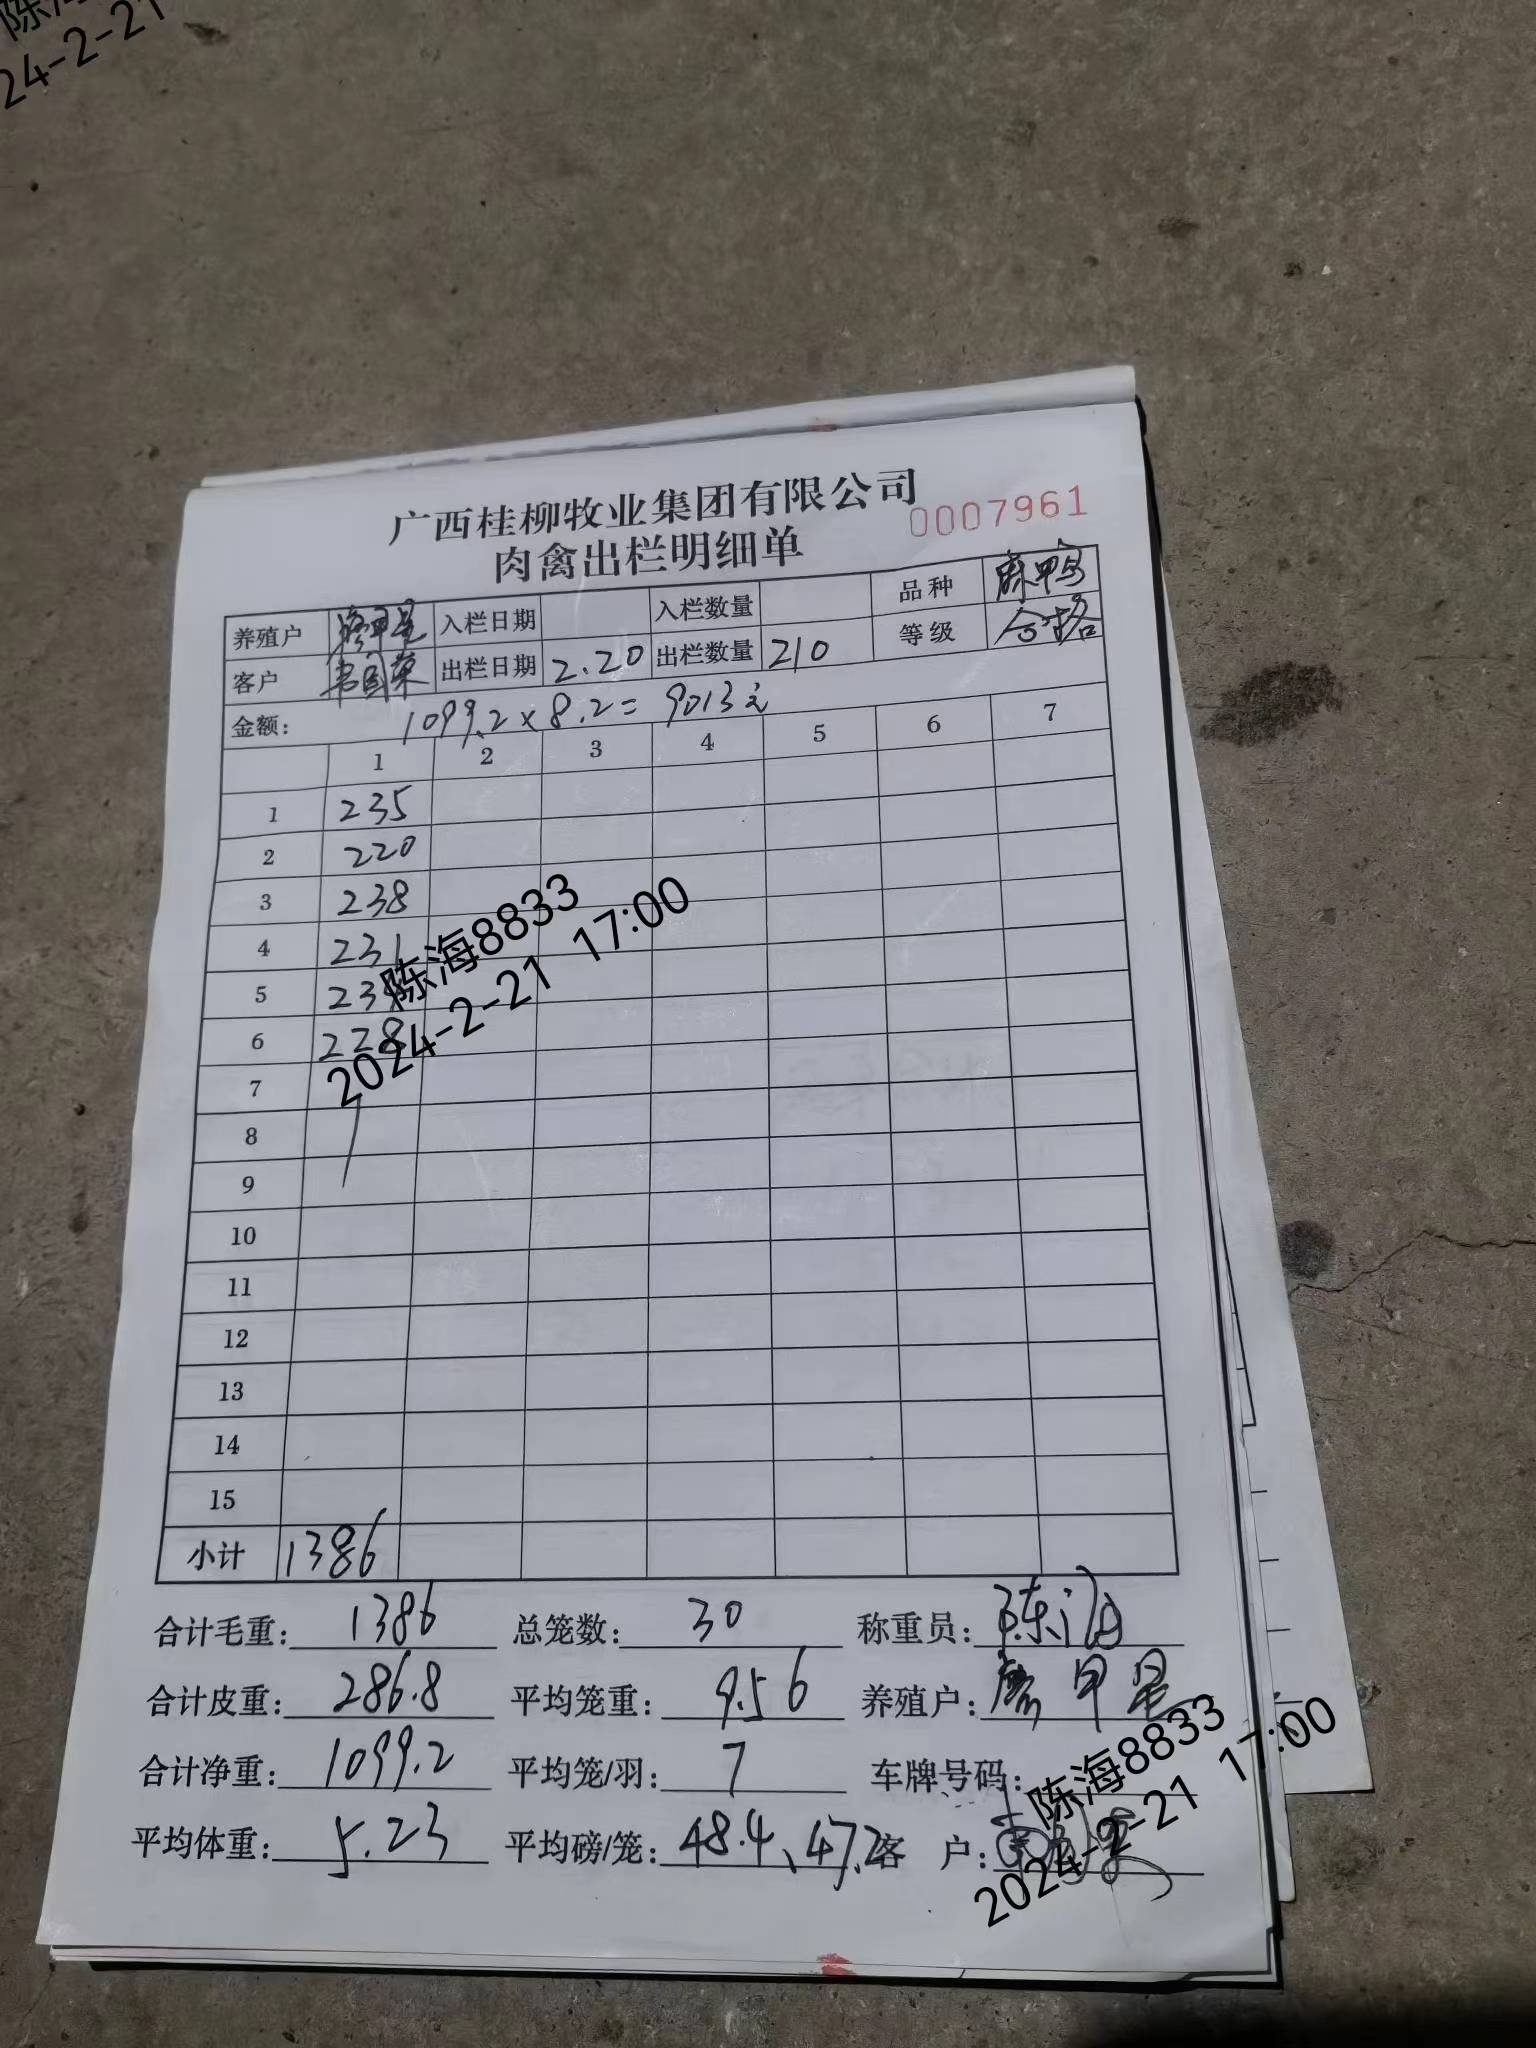 24-2-21
广西桂柳牧业集团有限公司
0007961
肉禽出栏明细单
养殖户 入栏日期 入栏数量 品种 麻鸭
客户 韦国荣 出栏日期 2.20 出栏数量 210 等级 合格
金额: 1099.2×8.2=9013元
1 2 3 4 5 6 7
1 235
2 220
3 238
4 231
5 23
6 228
7
8
9
10
11
12
13
14
15
小计 1386
陈海8833
2024-2-21 17:00
合计毛重: 1386 总笼数: 30 称重员: 陈海
合计皮重: 286.8 平均笼重: 9.56 养殖户: 甲星
合计净重: 1099.2 平均笼/羽: 7 车牌号码:
平均体重: 5.23 平均磅/笼: 48.4、47.2 客 户:
陈海8833
2024-2-21 17:00